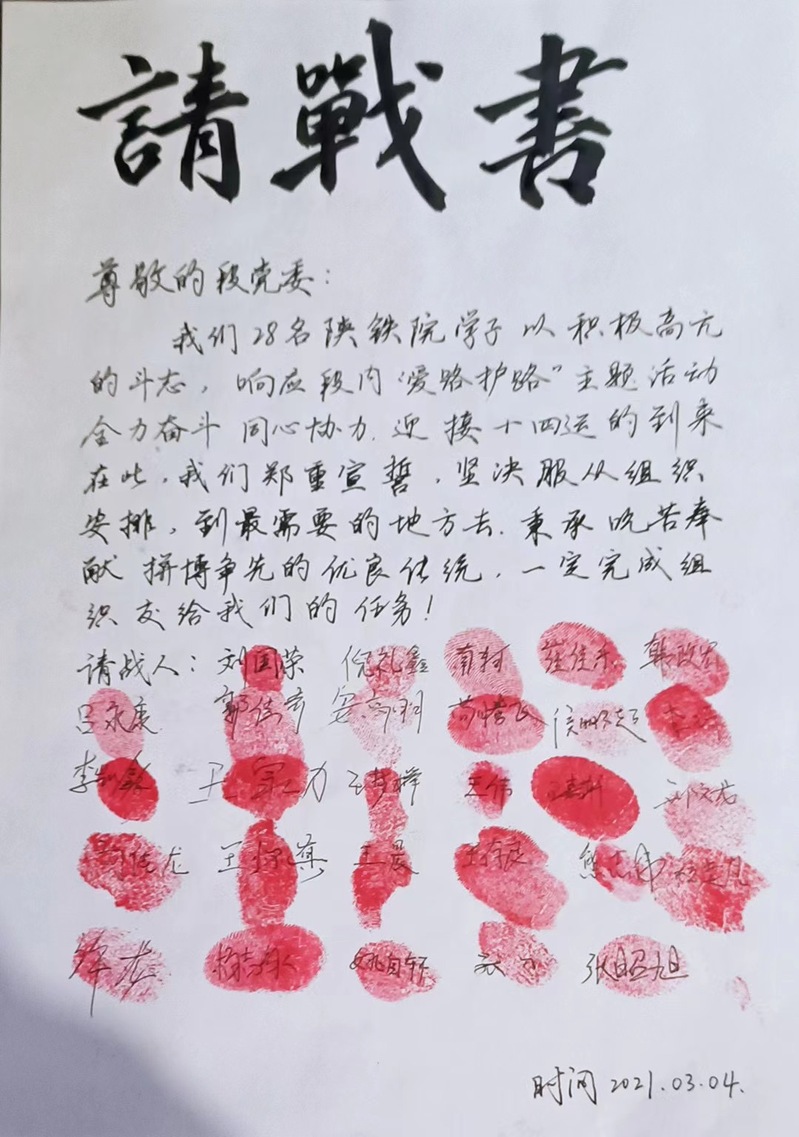 請戰書
尊敬的段党委：
我们28名陕铁院学子以积极高亢
的斗志，响应段内“爱路护路”主题活动
全力奋斗 同心协力.迎接十四运的到来
在此，我们郑重宣誓，坚决服从组织
安排，到最需要的地方去.秉承吃苦奉
献 拼搏争先的优良传统，一定完成组
织交给我们的任务！
请战人：刘国荣 倪礼鑫 南轲 崔佳乐
吕永康
王宗力 王梦祥 王伟 刘文龙
王晨
徐龙 张昭旭
时间2021.03.04.